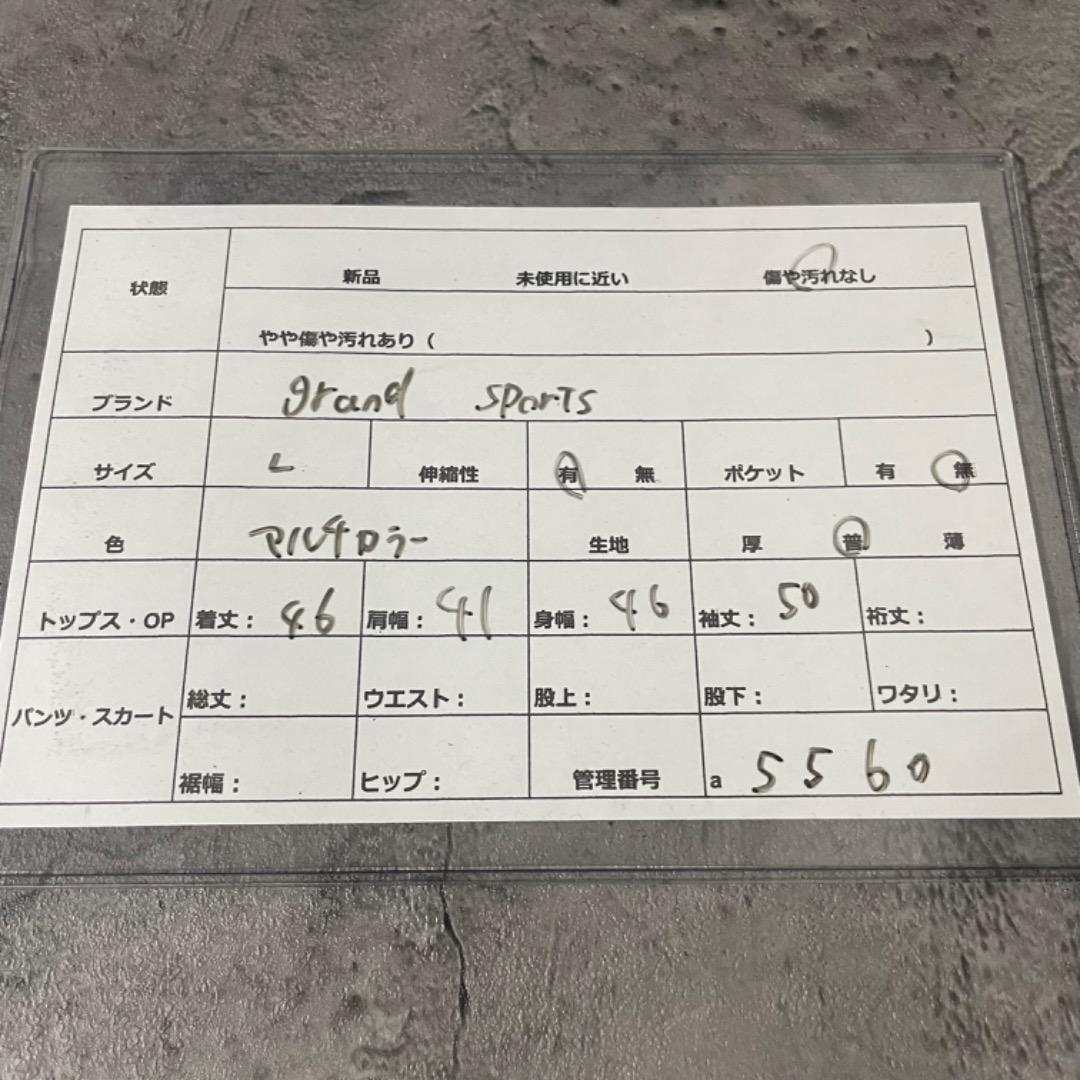 状態 新品 未使用に近い 傷や汚れなし
やや傷や汚れあり ( )
ブランド grand sports
サイズ L 伸縮性 有 無 ポケット 有 無
色 マルチカラー 生地 厚 普 薄
トップス・OP 着丈: 46 肩幅: 41 身幅: 46 袖丈: 50 裄丈:
パンツ・スカート 総丈: ウエスト: 股上: 股下: ワタリ:
裾幅: ヒップ: 管理番号 a 5560